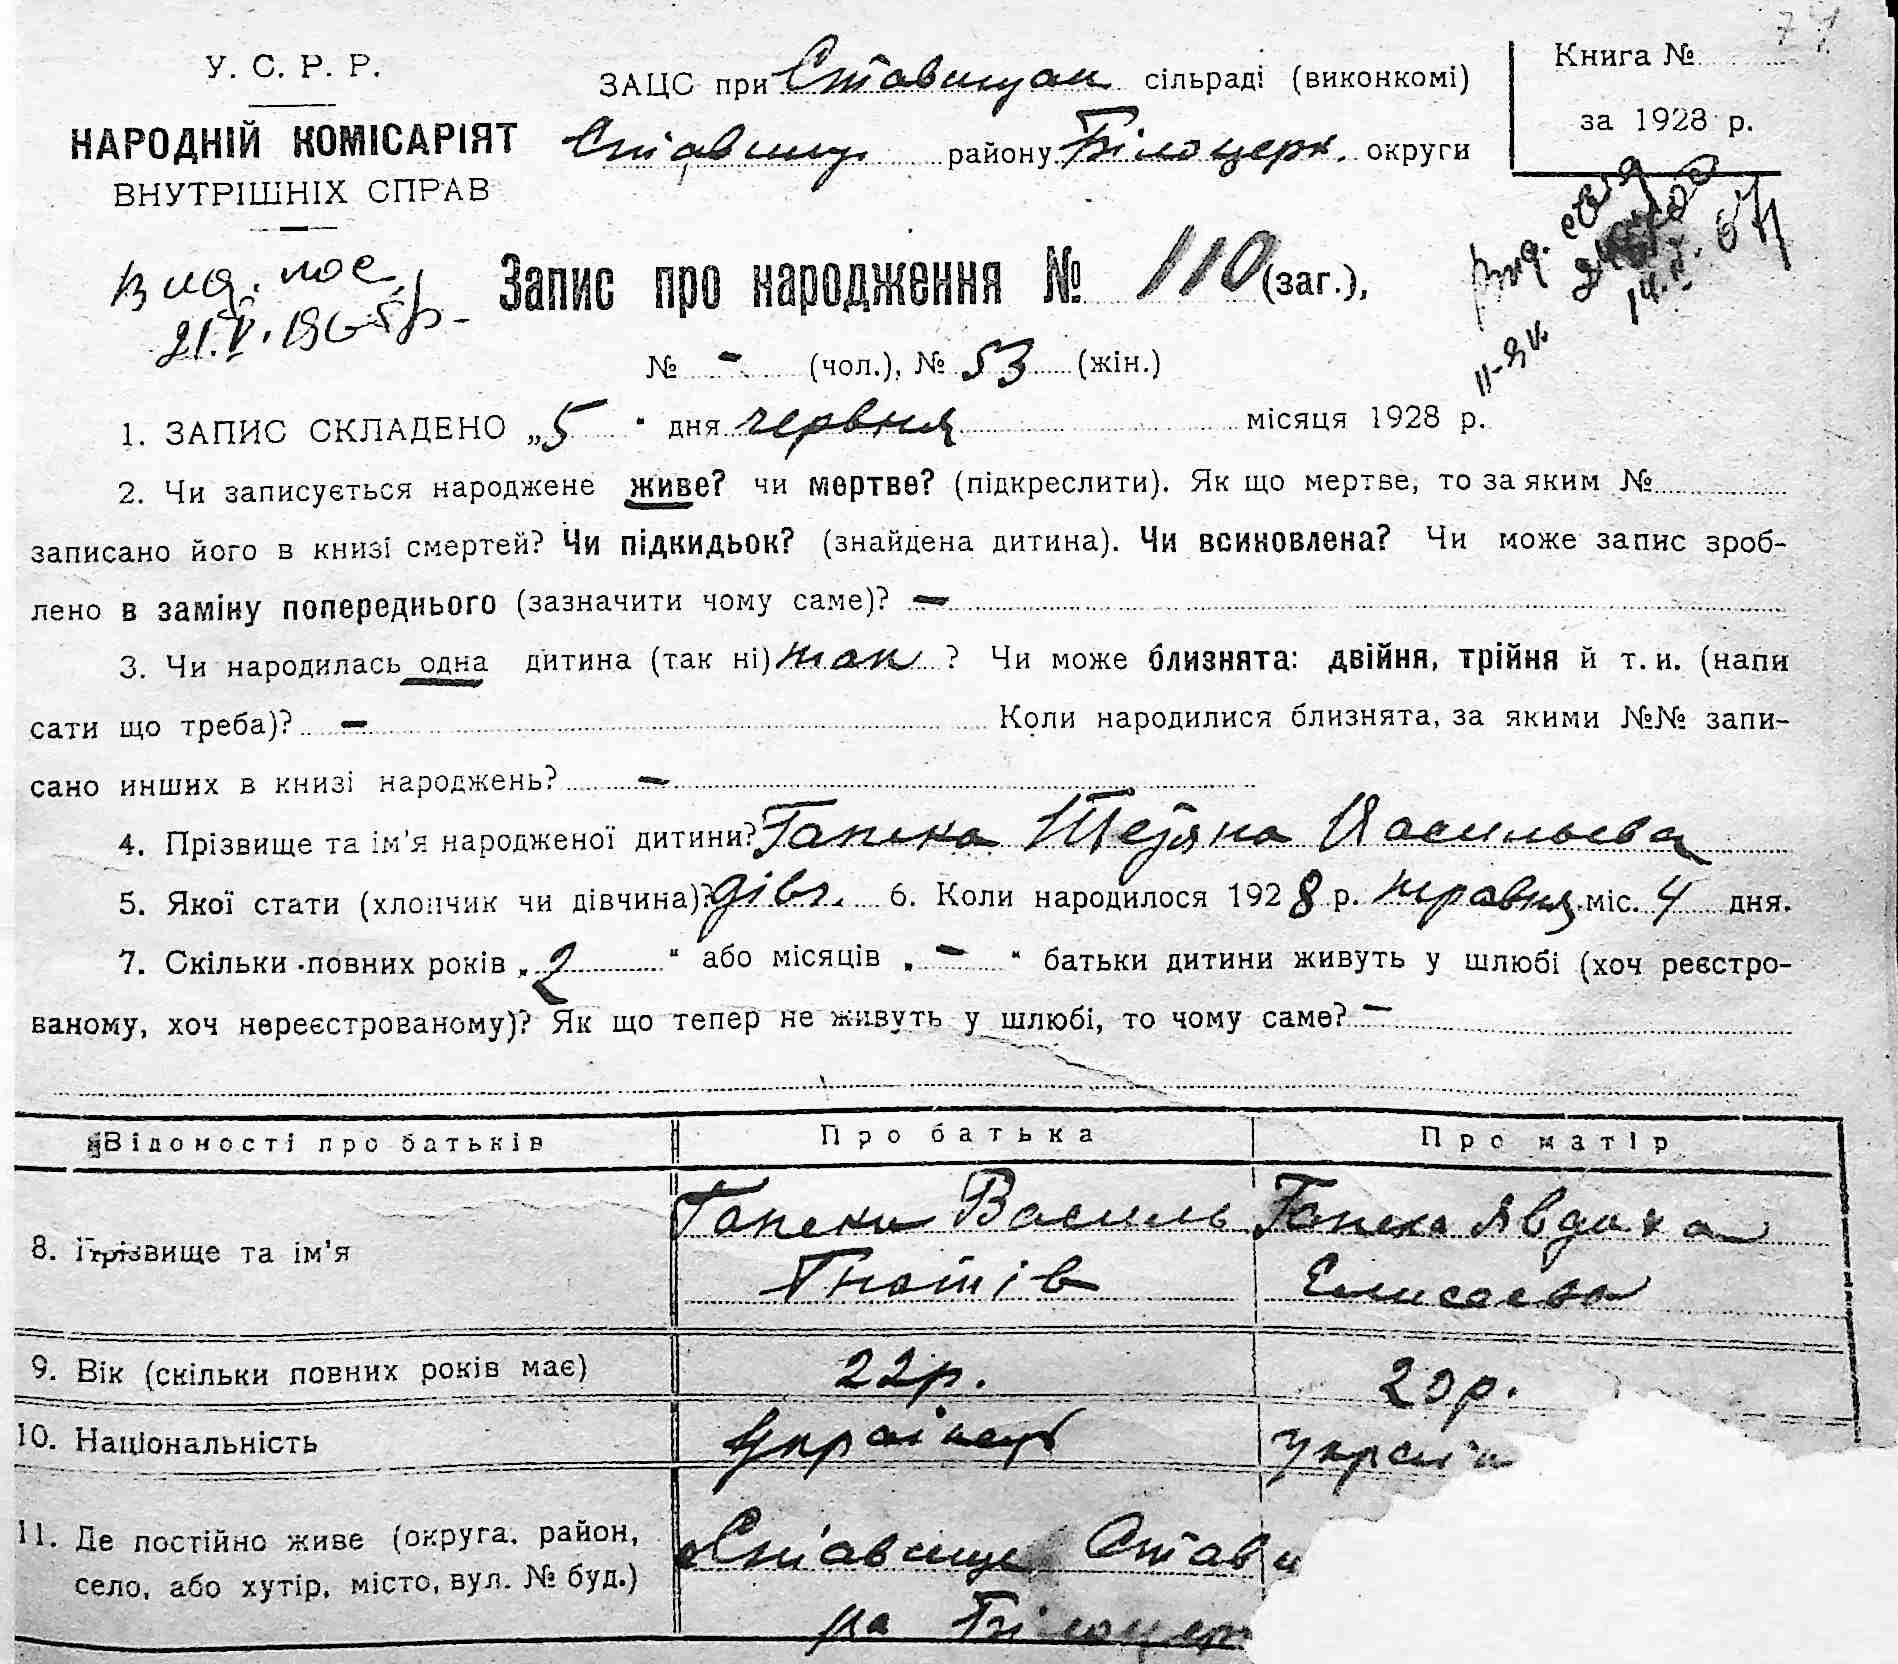 74
У. С. Р. Р.
НАРОДНІЙ КОМІСАРІЯТ
ВНУТРІШНІХ СПРАВ
ЗАЦС при Ставищан сільраді (виконкомі)
Ставищ. району Білоцерк. округи
Книга №
за 1928 р.
Вид. пос.
21.V.1965р-
Запис про народження № 110 (заг.),
№ - (чол.), № 53 (жін.)
1. ЗАПИС СКЛАДЕНО „5" дня червня місяця 1928 р.
2. Чи записується народжене живе? чи мертве? (підкреслити). Як що мертве, то за яким №
записано його в книзі смертей? Чи підкидьок? (знайдена дитина). Чи всиновлена? Чи може запис зроб-
лено в заміну попереднього (зазначити чому саме)? —
3. Чи народилась одна дитина (так ні) так ? Чи може близнята: двійня, трійня й т. и. (напи
сати що треба)? — Коли народилися близнята, за якими №№ запи-
сано инших в книзі народжень? —
4. Прізвище та ім'я народженої дитини? Гапека Тетяна Васильева
5. Якої стати (хлопчик чи дівчина)? дівч. 6. Коли народилося 1928 р. травня міс. 4 дня.
7. Скільки повних років „2" або місяців „—" батьки дитини живуть у шлюбі (хоч реєстро-
ваному, хоч нереєстрованому)? Як що тепер не живуть у шлюбі, то чому саме? —
Відомості про батьків Про батька Про матір
8. Прізвище та ім'я Гапека Василь Гапека Явдоха
Гнатів Елисеева
9. Вік (скільки повних років має) 22р. 20р.
10. Національність українець україн
11. Де постійно живе (округа, район, Ставище Стави
село, або хутір, місто, вул. № буд.)
ра Білоцерк